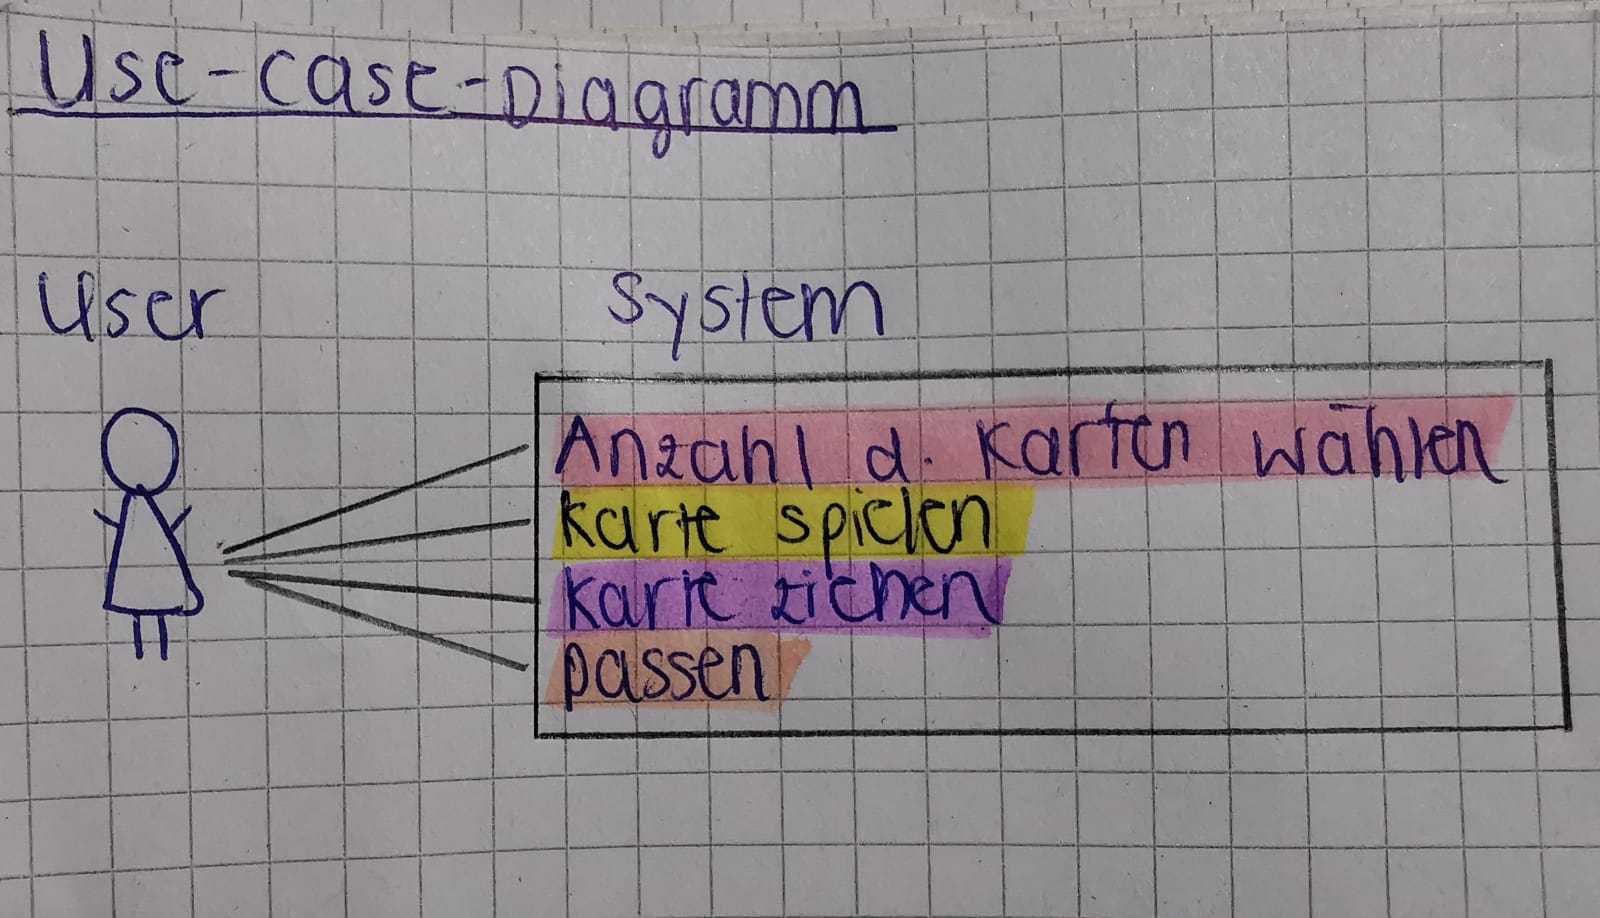 Use-case-Diagramm
User
System
Anzahl d. Karten wählen
Karte spielen
Karte ziehen
passen